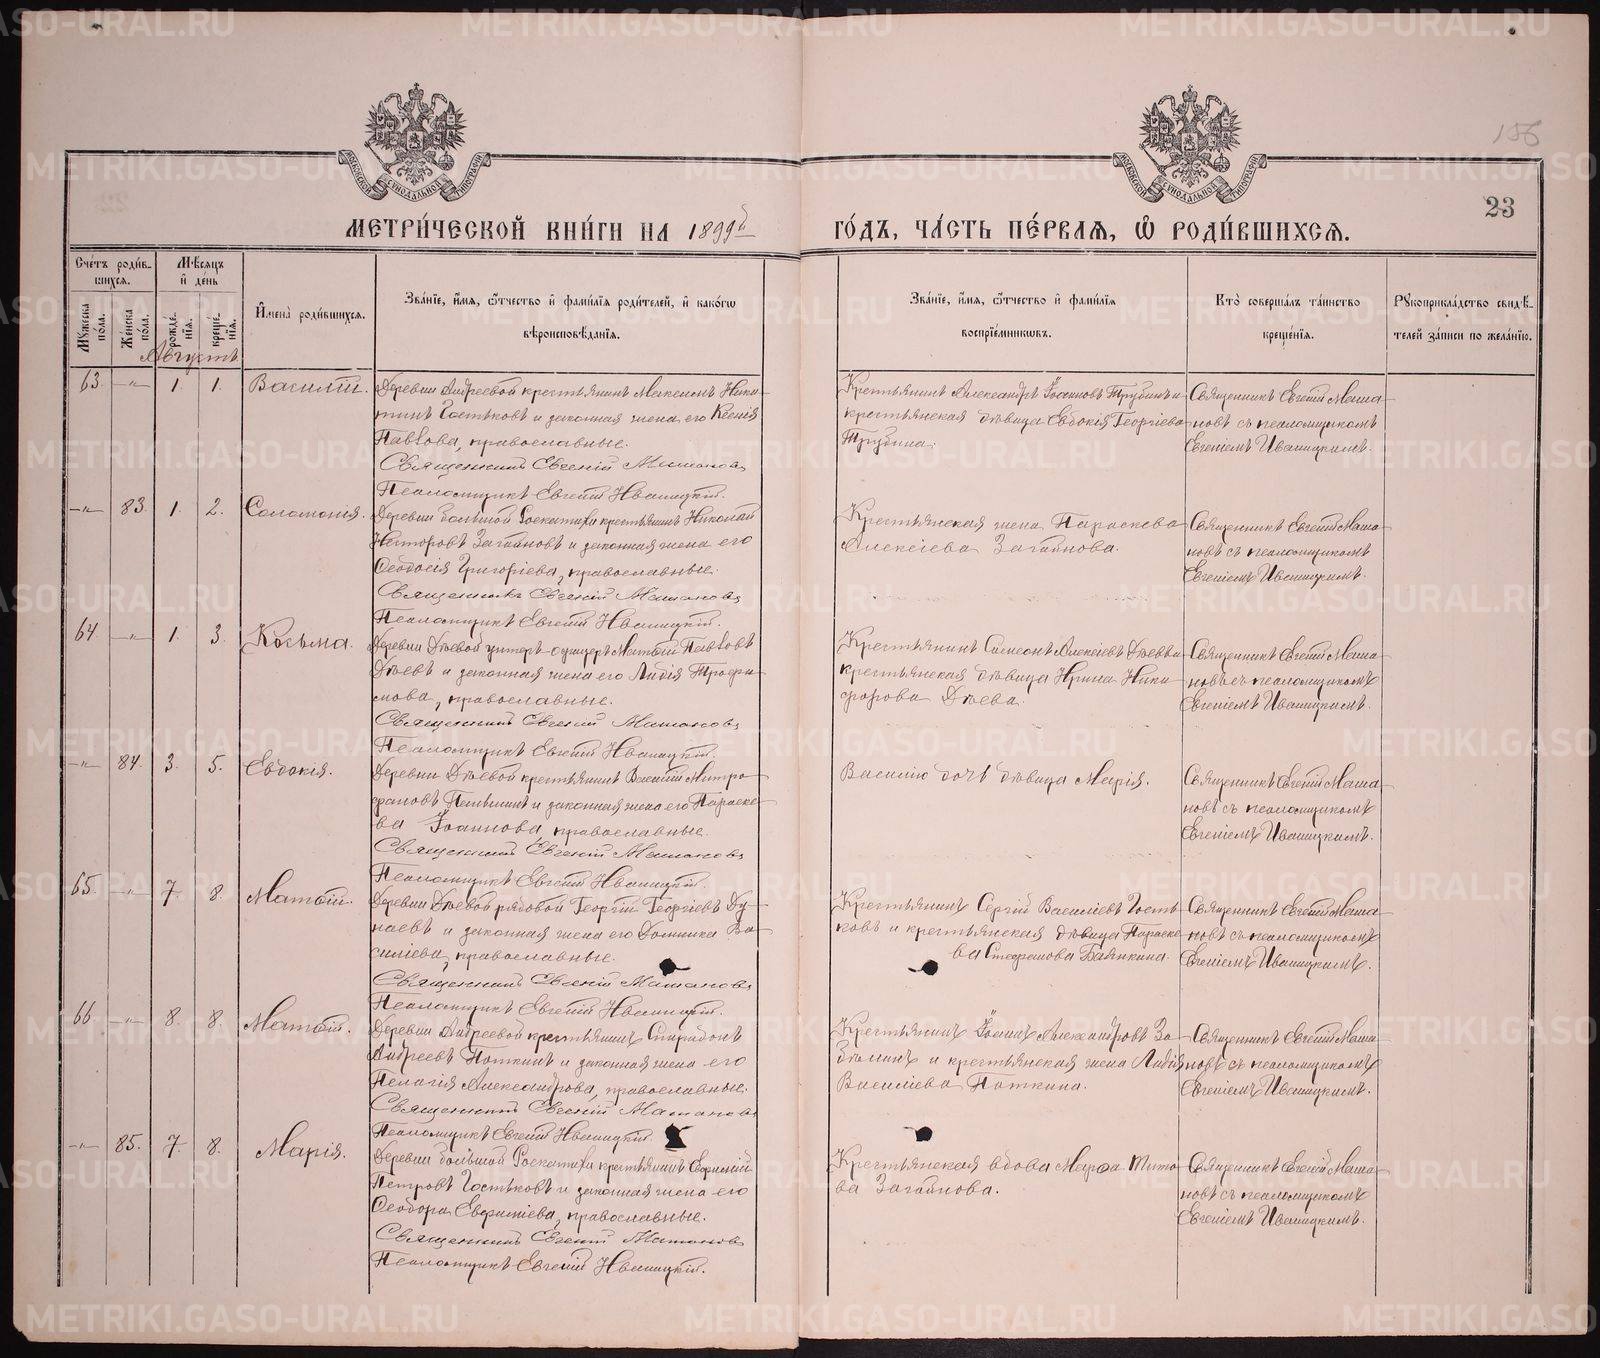 156
23
МЕТРИ́ЧЕСКОЙ КНИ́ГИ НА 1899й ГО́ДЪ, ЧА́СТЬ ПЕ́РВАЯ, Ѡ РОДИ́ВШИХСЯ.
Сче́тъ роди́в-
шихся.
Мꙋ́жеска пола.
Же́нска пола.
Мѣ́сяцъ
и҆ де́нь
рожде́-
нїя.
креще́-
нїя.
И҆мена̀ роди́вшихся.
Зва́нїе, и҆́мя, ѻ҆́тчество и҆ фами́лїя роди́телей, и҆ како́гѡ
вѣроисповѣ́данїя.
Зва́нїе, и҆́мя, ѻ҆́тчество и҆ фами́лїя
воспрїе́мниковъ.
Кто̀ соверша́лъ та́инство
креще́нїя.
Рꙋкоприкла́дство свидѣ́-
телей за́писи по жела́нїю.
Августъ
63. —„— 1. 1. Василій.
Деревни Андреевой крестьянинъ Максимъ Ники-
тинъ Гостьковъ и законная жена его Ксенія
Павлова, православные.
Священникъ Евгеній Машановъ
Псаломщикъ Евгеній Иваницкій.
Крестьянинъ Александръ Іоанновъ Трубинъ и
крестьянская дѣвица Евдокія Георгіева
Трубина.
Священникъ Евгеній Маша-
новъ съ псаломщикомъ
Евгеніемъ Иваницкимъ.
—„— 83. 1. 2. Саломонія.
Деревни большой Роскатихи крестьянинъ Николай
Несторовъ Загайновъ и законная жена его
Ѳеодосія Григоріева, православные.
Священникъ Евгеній Машановъ
Псаломщикъ Евгеній Иваницкій.
Крестьянская жена Параскева
Алексіева Загайнова.
Священникъ Евгеній Маша-
новъ съ псаломщикомъ
Евгеніемъ Иваницкимъ.
64. —„— 1. 3. Косьма.
Деревни Дѣевой унтеръ-офицеръ Матѳій Павловъ
Дѣевъ и законная жена его Лидія Трофи-
мова, православные.
Священникъ Евгеній Машановъ
Псаломщикъ Евгеній Иваницкій.
Крестьянинъ Симеонъ Алексіевъ Дѣевъ и
крестьянская дѣвица Ирина Ники-
форова Дѣева.
Священникъ Евгеній Маша-
новъ съ псаломщикомъ
Евгеніемъ Иваницкимъ.
—„— 84. 3. 5. Евдокія.
Деревни Дѣевой крестьянинъ Василій Митро-
фановъ и законная жена его Параске-
ва Іоаннова, православные.
Священникъ Евгеній Машановъ
Псаломщикъ Евгеній Иваницкій.
Василію дочь дѣвица Марія.
Священникъ Евгеній Маша-
новъ съ псаломщикомъ
Евгеніемъ Иваницкимъ.
65. —„— 7. 8. Матѳій.
Деревни Дѣевой рядовой Георгій Георгіевъ Ду-
наевъ и законная жена его Домника Ва-
силіева, православные.
Священникъ Евгеній Машановъ
Псаломщикъ Евгеній Иваницкій.
Крестьянинъ Сергій Василіевъ Гость-
ковъ и крестьянская дѣвица Параске-
ва Стефанова Баянкина.
Священникъ Евгеній Маша-
новъ съ псаломщикомъ
Евгеніемъ Иваницкимъ.
66. —„— 8. 8. Матѳій.
Деревни Андреевой крестьянинъ Спиридонъ
Андреевъ Поткинъ и законная жена его
Пелагія Александрова, православные.
Священникъ Евгеній Машановъ
Псаломщикъ Евгеній Иваницкій.
Крестьянинъ Іоаннъ Александровъ За-
и крестьянская жена Лидія
Василіева Поткина.
Священникъ Евгеній Маша-
новъ съ псаломщикомъ
Евгеніемъ Иваницкимъ.
—„— 85. 7. 8. Марія.
Деревни большой Роскатихи крестьянинъ Ефимій
Петровъ Гостьковъ и законная жена его
Ѳеодора Евфиміева, православные.
Священникъ Евгеній Машановъ
Псаломщикъ Евгеній Иваницкій.
Крестьянская вдова Марѳа Тито-
ва Загайнова.
Священникъ Евгеній Маша-
новъ съ псаломщикомъ
Евгеніемъ Иваницкимъ.
METRIKI.GASO-URAL.RU